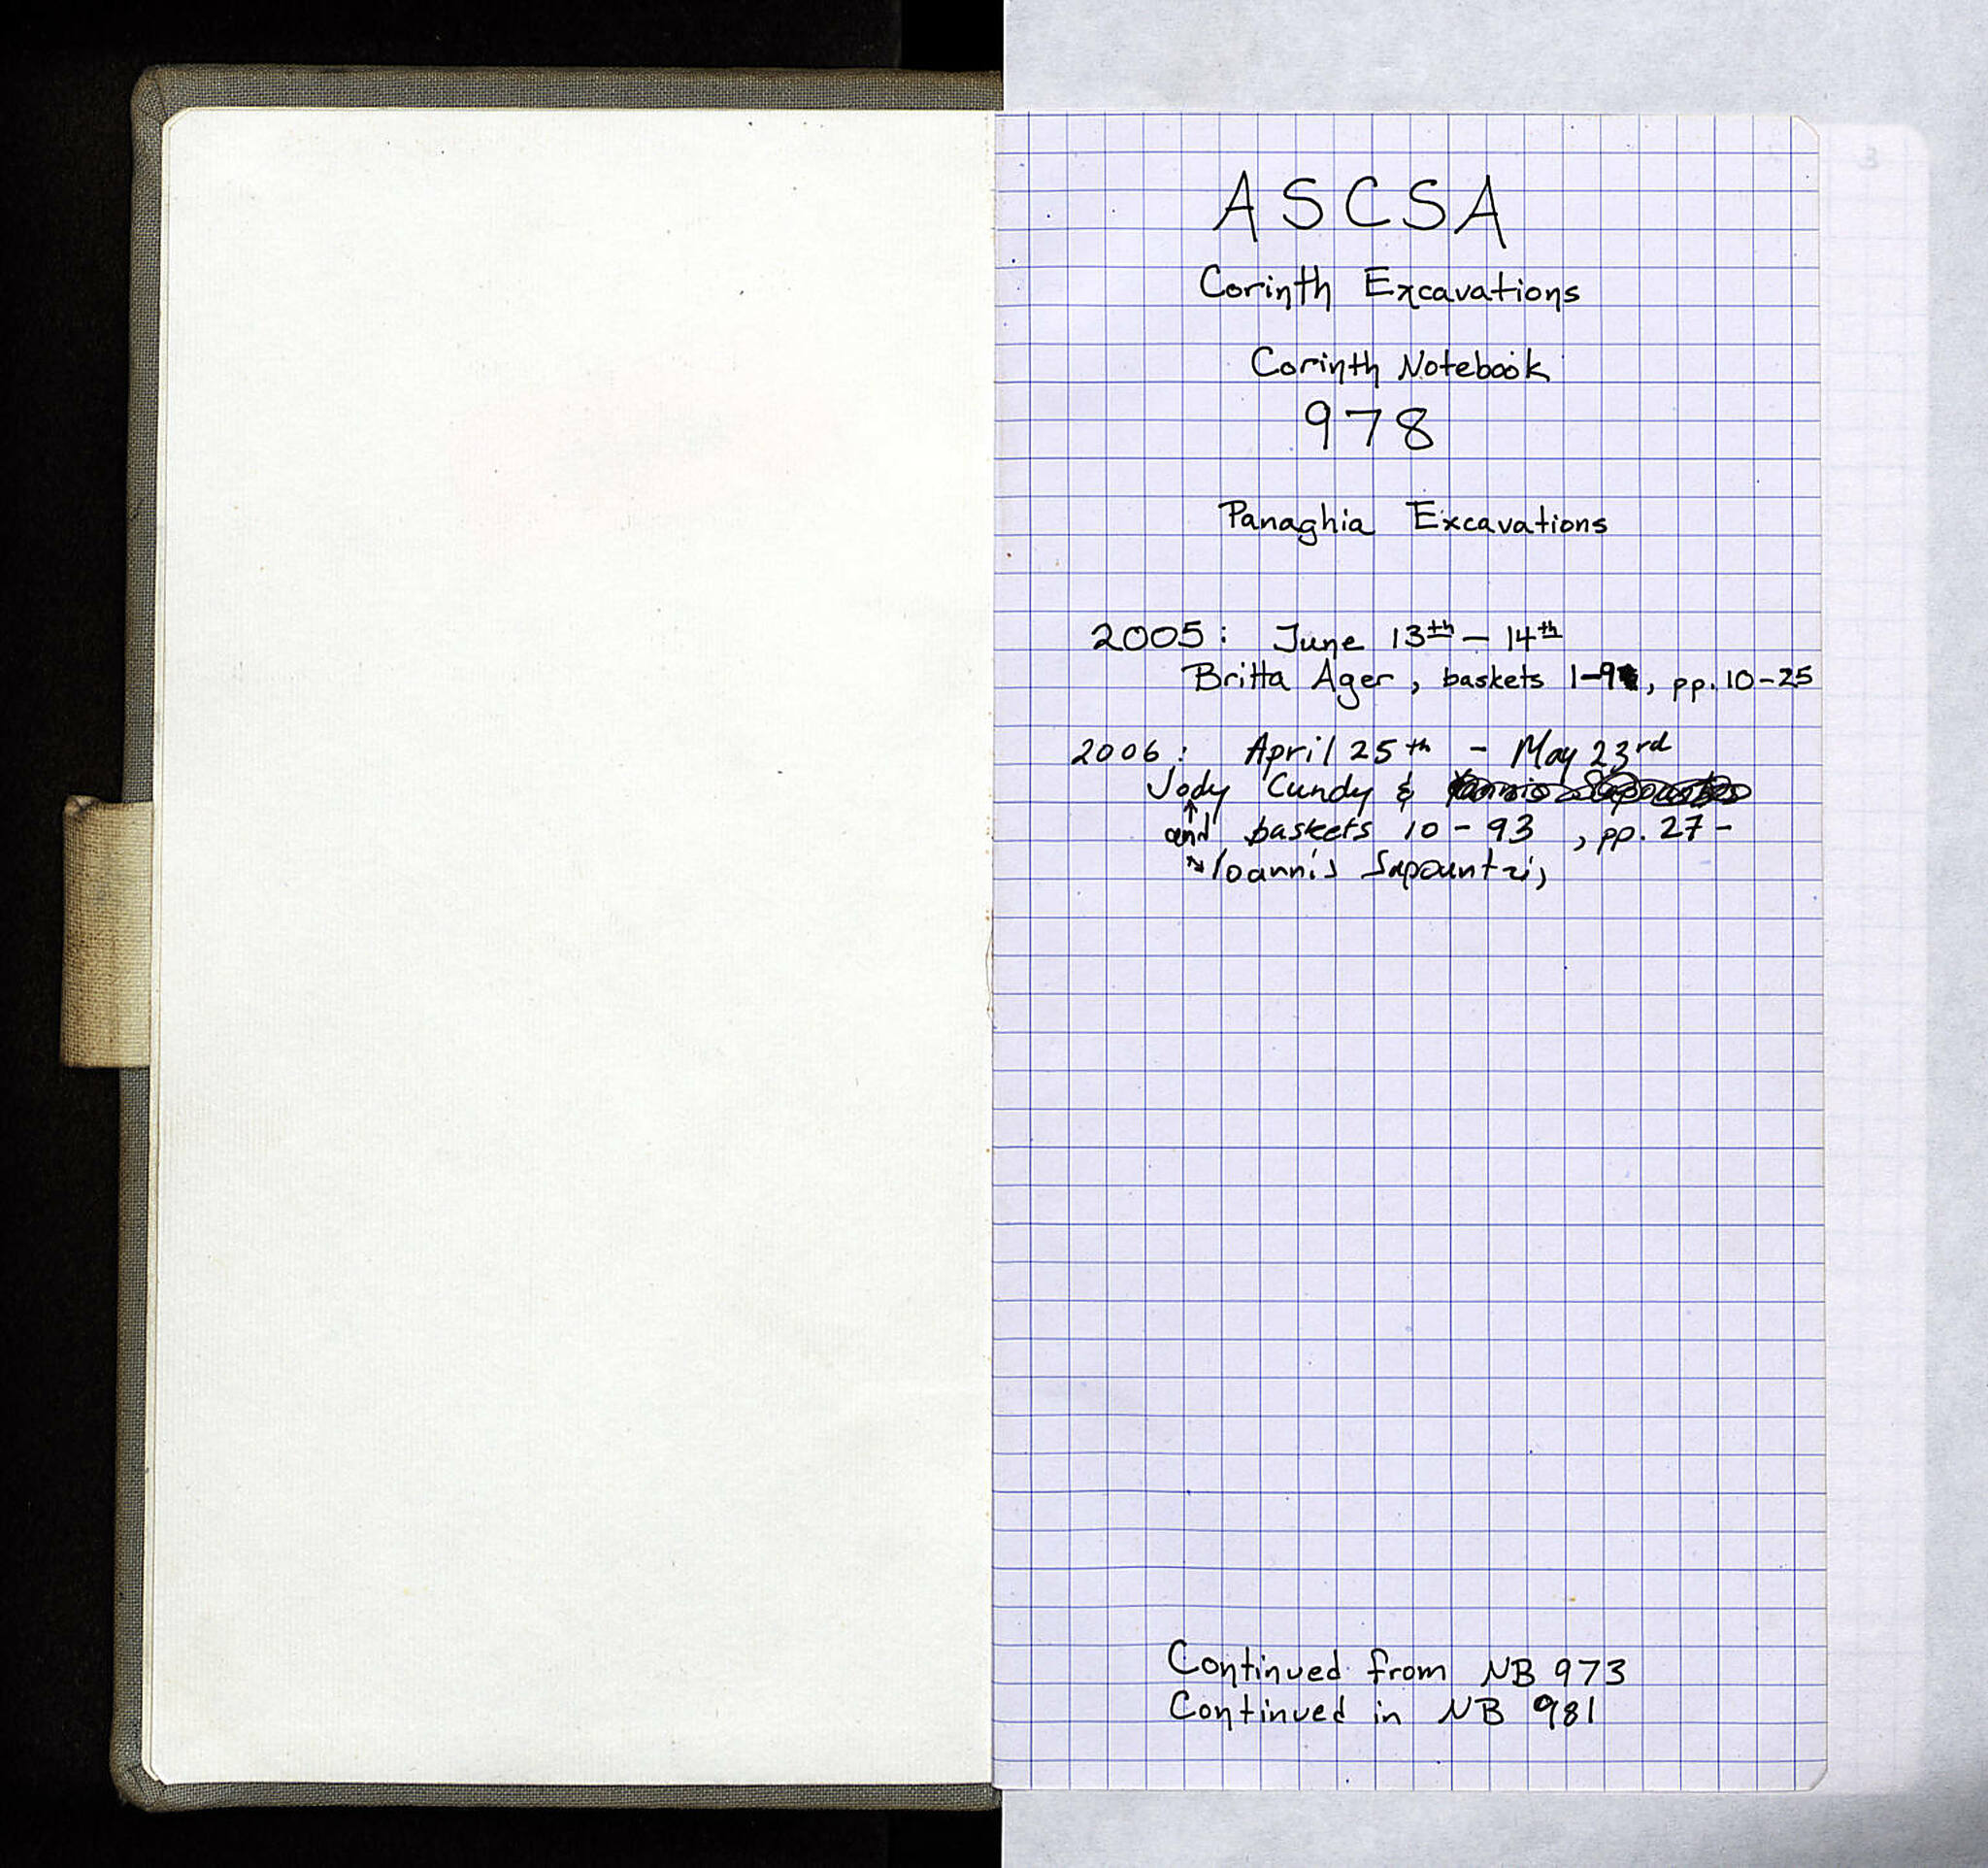 ASCSA
Corinth Excavations
Corinth Notebook
978
Panaghia Excavations
2005: June 13th – 14th
Britta Ager, baskets 1-9, pp. 10-25
2006: April 25th - May 23rd
Jody Cundy &
and baskets 10-93, pp. 27-
Ioannis Sapountzis
Continued from NB 973
Continued in NB 981